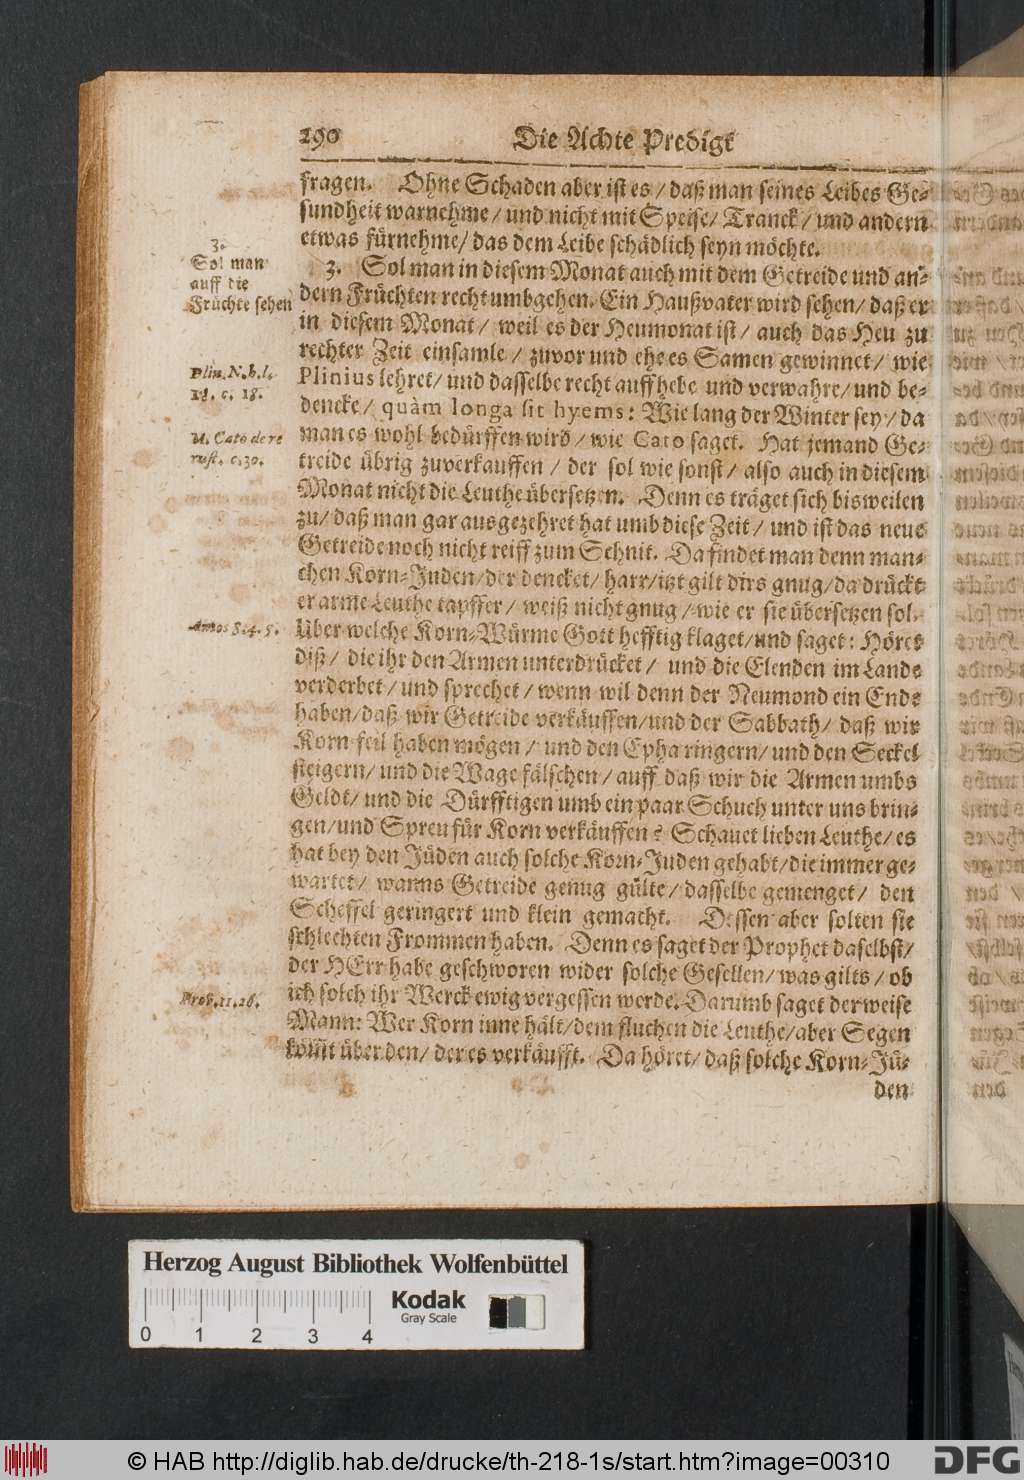 290 Die Achte Predigt
fragen. Ohne Schaden aber ist es / daß man seines Leibes Ge-
sundheit warnehme / und nicht mit Speise / Tranck / und andern
etwas fürnehme / das dem Leibe schädlich seyn möchte.
3.
Sol man
auff die
Früchte sehen
3. Sol man in diesem Monat auch mit dem Getreide und an-
dern Früchten recht umbgehen. Ein Haußvater wird sehen / daß er
in diesem Monat / weil es der Heumonat ist / auch das Heu zu
rechter Zeit einsamle / zuvor und ehe es Samen gewinnet / wie
Plin. N. h. l.
18. c. 18.
Plinius lehret / und dasselbe recht auff hebe und verwahre / und be-
dencke / quàm longa sit hyems: Wie lang der Winter sey / da
M. Cato de re
rust. c. 30.
man es wohl bedürffen wird / wie Cato saget. Hat jemand Ge-
treide übrig zuverkauffen / der sol wie sonst / also auch in diesem
Monat nicht die Leuthe übersetzen. Denn es träget sich bisweilen
zu / daß man gar ausgezehret hat umb diese Zeit / und ist das neue
Getreide noch nicht reiff zum Schnit. Da findet man denn man-
chen Korn-Juden / der dencket / harr / itzt gilt dirs gnug / da drückt
er arme Leuthe tapffer / weiß nicht gnug / wie er sie übersetzen sol.
Amos 8. 4. 5.
Über welche Korn-Würme Gott hefftig klaget / und saget: Höret
diß / die ihr den Armen unterdrücket / und die Elenden im Lande
verderbet / und sprechet / wenn wil denn der Neumond ein Ende
haben / daß wir Getreide verkäuffen / und der Sabbath / daß wir
Korn feil haben mögen / und den Epha ringern / und den Seckel
steigern / und die Wage fälschen / auff daß wir die Armen umbs
Geldt / und die Dürfftigen umb ein paar Schuch unter uns brin-
gen / und Spreu für Korn verkäuffen? Schauet lieben Leuthe / es
hat bey den Jüden auch solche Korn-Juden gehabt / die immer ge-
wartet / wanns Getreide genug gülte / dasselbe gemenget / den
Scheffel geringert und klein gemacht. Dessen aber solten sie
schlechten Frommen haben. Denn es saget der Prophet daselbst /
der HErr habe geschworen wider solche Gesellen / was gilts / ob
Prov. 11. 26.
ich solch ihr Werck ewig vergessen werde. Darumb saget der weise
Mann: Wer Korn inne hält / dem fluchen die Leuthe / aber Segen
kömt über den / der es verkäufft. Da höret / daß solche Korn-Jü-
den
Herzog August Bibliothek Wolfenbüttel
0 1 2 3 4
Kodak
Gray Scale
© HAB http://diglib.hab.de/drucke/th-218-1s/start.htm?image=00310
DFG